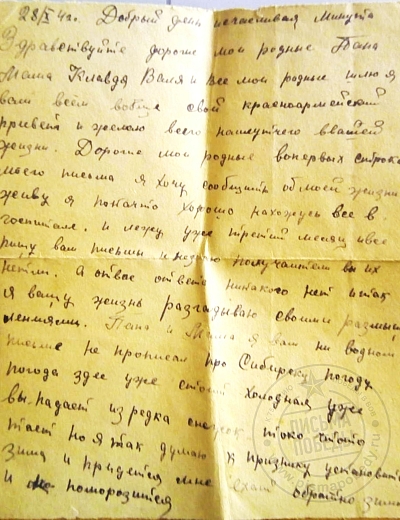 28/X 42г. Добрый день и счасливая минута
Здравствуйте дорогие мои родные Папа
Мама Клавдя Валя и все мои родные шлю я
вам всем вобще свой красноармейский
привет и желаю всего наилутчего в вашей
жизни. Дорогие мои родные вопервых строках
моего письма я хочу сообщить об моей жизни
живу я покачто хорошо нахожусь все в
госпитале. и лежу уже третий месяц и все
пишу вам письма и незнаю получаители вы их
нетли. А отвас ответа никакого нет и так
я вашу жизнь разгадываю своими размыш
лениями. Папа и Мама я вам ни водном
письме не прописал про Сибирску погоду
погода здес уже стоит холодная уже
выпадает изредка снежок токо стоит
тает но я так думаю к празнику установится
зима и придется мне ехат обратно зимой
и не поморозится
ПИСЬМА
ПОБЕДЫ